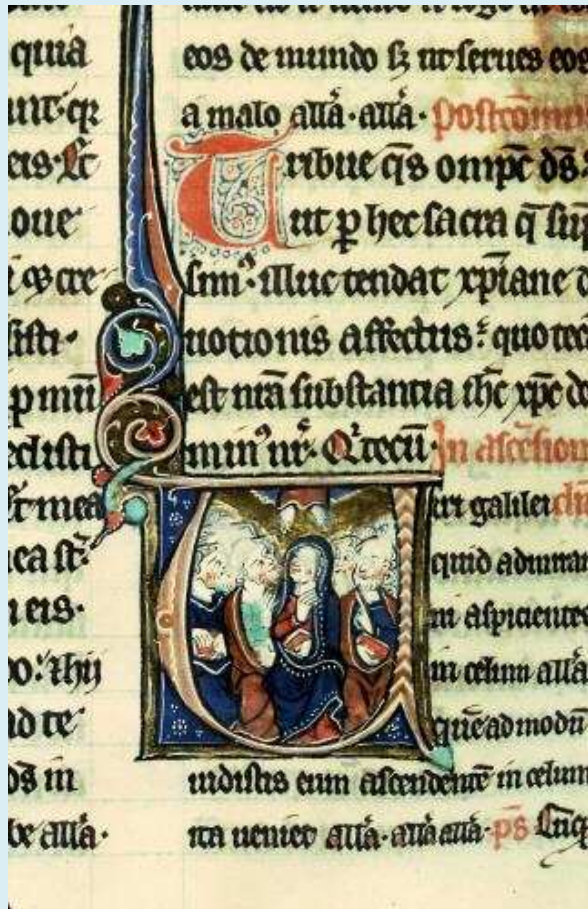 quia
unt· qr
eis· Et
oue
i q cre
sisti·
p mū
edisti
Et mea
ea st:
n eis·
do: Thū
ad te
ds in
be all'a·
eos de mundo sz ut serues eos
a malo all'a· all'a· Postcōmu
Tribue qs ompc ds:
ut p hec sacra q sup
sim'· illuc tendat xpiane d
uotionis affectus: quo tecū
est nr̄a substantia ihc xpc do
min' nr̄· Q' tecū· In ascēsion
Uiri galilei
quid admiram
ni aspicientes
in celum all'a
quēadmodū
uidistis eum ascendentē in celum
ita ueniet all'a· all'a all'a· ps Cūq